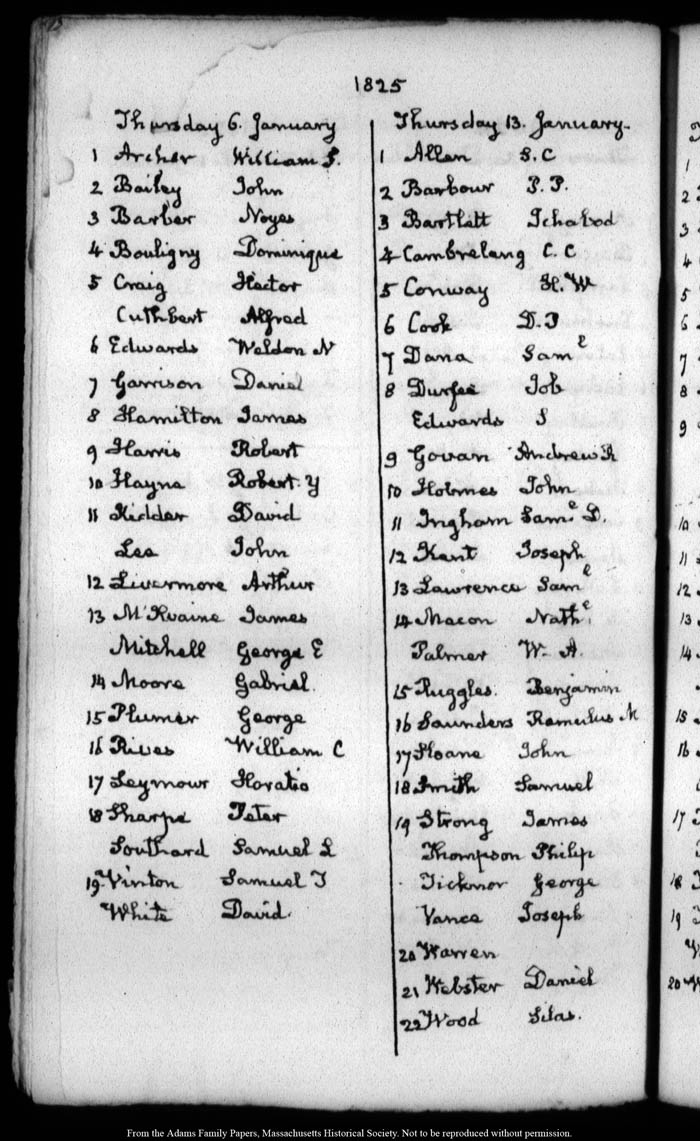 1825
Thursday 6. January
1 Archer William S.
2 Bailey John
3 Barber Noyes
4 Bouligny Dominique
5 Craig Hector
Cuthbert Alfred
6 Edwards Weldon N
7 Garrison Daniel
8 Hamilton James
9 Harris Robert
10 Hayne Robert. Y
11 Kidder David
Lee John
12 Livermore Arthur
13 McIlvaine James
Mitchell George E
14 Moore Gabriel.
15 Plumer George
16 Rives William C
17 Seymour Horatio
18 Sharpe Peter
Southard Samuel L
19 Vinton Samuel F
White David.
Thursday 13. January.
1 Allen S. C
2 Barbour P. P.
3 Bartlett Ichabod
4 Cambreleng C. C
5 Conway H. W
6 Cook D. P
7 Dana Saml
8 Durfee Job
Edwards J
9 Govan Andrew R
10 Holmes John
11 Ingham Saml D.
12 Kent Joseph
13 Lawrence Saml
14 Macon Nathl
Palmer W. A
15 Ruggles. Benjamin
16 Saunders Romulus M
17 Sloane John
18 Smith Samuel
19 Strong James
Thompson Philip
Ticknor George
Vance Joseph
20 Warren
21 Webster Daniel
22 Wood Silas.
1
2
3
4
5
6
7
8
9
10
11
12
13
14
15
16
17
18
19
20
From the Adams Family Papers, Massachusetts Historical Society. Not to be reproduced without permission.